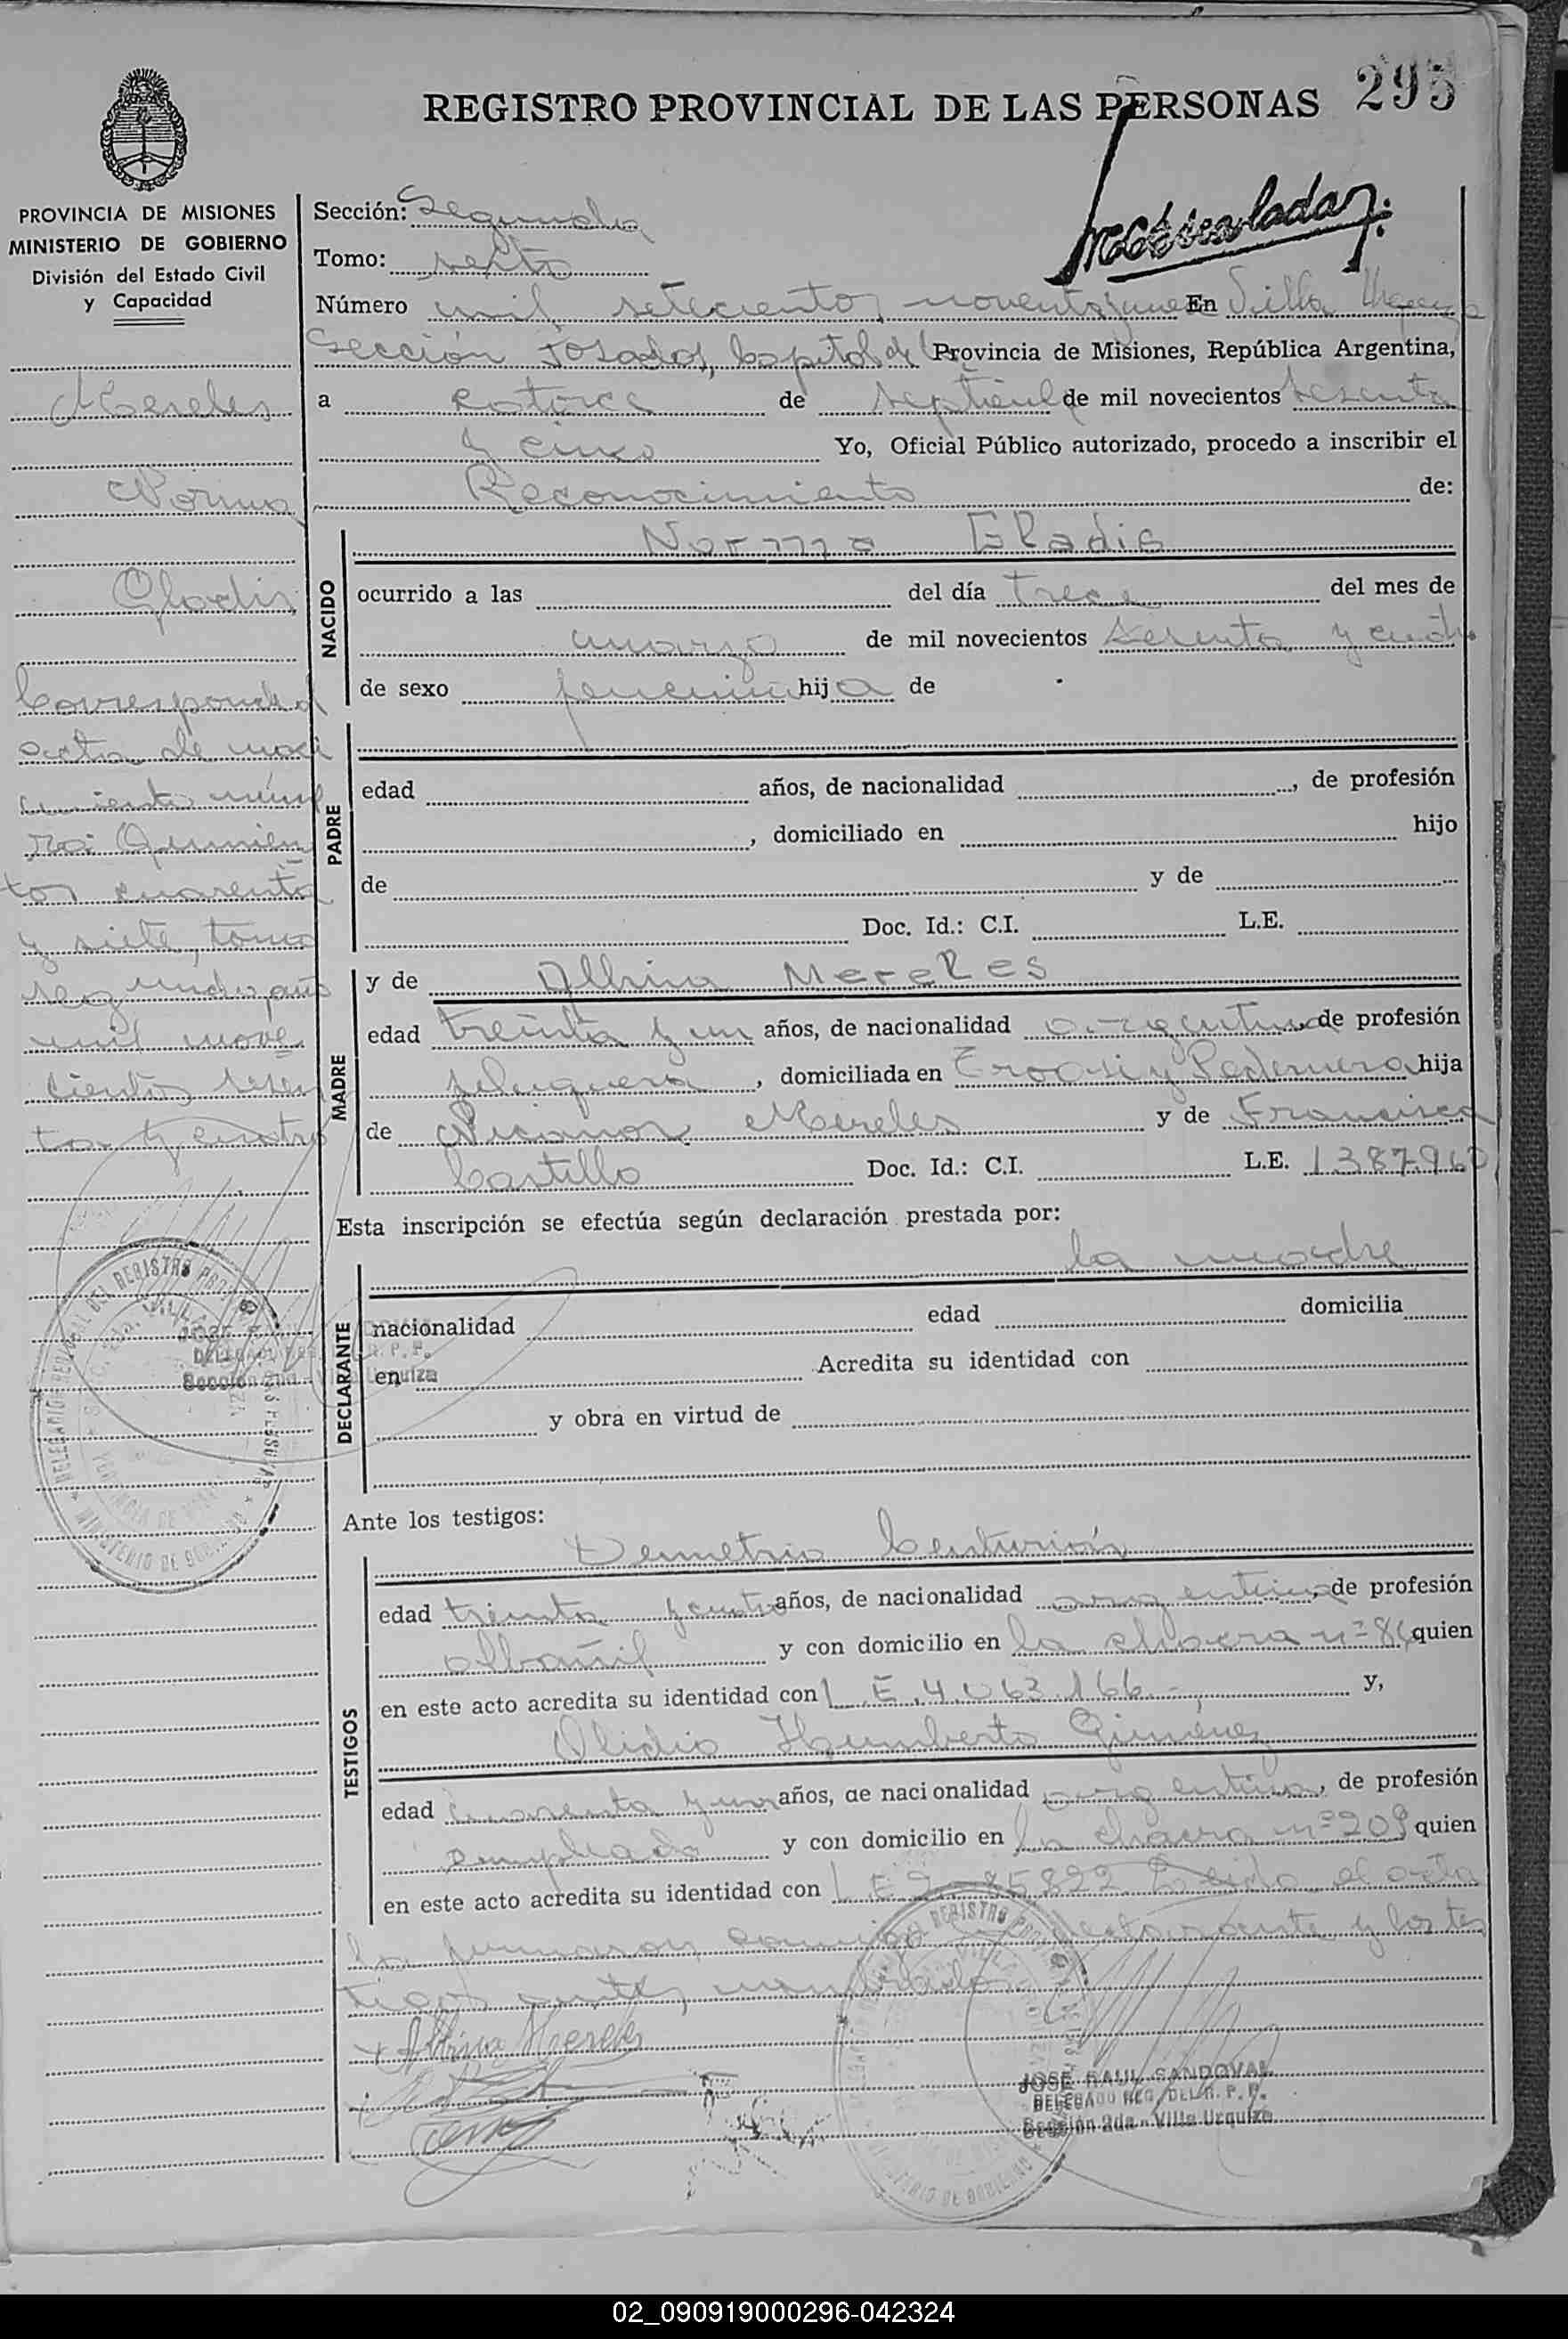 295
REGISTRO PROVINCIAL DE LAS PERSONAS
PROVINCIA DE MISIONES
MINISTERIO DE GOBIERNO
División del Estado Civil
y Capacidad
Mereles
Norma
Gladis
Corresponde al
acta de naci
miento núme
ro: Quinien
tos cuarenta
y siete, tomo
segundo, año
mil nove
cientos sesen
ta y cuatro
Sección: Segunda
Tomo: sexto
Número mil setecientos noventa y nueve En Villa Urquiza
Sección Posadas, Capital de Provincia de Misiones, República Argentina,
a catorce de septiembre de mil novecientos sesenta
y cinco Yo, Oficial Público autorizado, procedo a inscribir el
Reconocimiento de:
NACIDO
Norma Gladis
ocurrido a las del día trece del mes de
marzo de mil novecientos sesenta y cuatro
de sexo femenino hija de
PADRE
edad años, de nacionalidad , de profesión
, domiciliado en hijo
de y de
Doc. Id.: C.I. L.E.
MADRE
y de Albina Mereles
edad treinta y un años, de nacionalidad argentina, de profesión
peluquera, domiciliada en y Pedernera hija
de Nicanor Mereles y de Francisca
Castillo Doc. Id.: C.I. L.E. 1387960
Esta inscripción se efectúa según declaración prestada por:
la madre
DECLARANTE
nacionalidad edad domicilia
en Acredita su identidad con
y obra en virtud de
Ante los testigos:
TESTIGOS
Demetrio Centurión
edad treinta y cuatro años, de nacionalidad argentina, de profesión
albañil y con domicilio en la chacra nº 86 quien
en este acto acredita su identidad con L.E. 4.063.166.- y,
Olidio Humberto Giménez
edad cuarenta y un años, de nacionalidad argentina, de profesión
empleado y con domicilio en la chacra nº 209 quien
en este acto acredita su identidad con L E Leida el acta
la firmaron conmigo declarante y los tes
tigos antes nombrados
Albina Mereles
JOSE RAUL SANDOVAL
DELEGADO REG. DEL R. P. P.
Sección 2da - Villa Urquiza
02_090919000296-042324